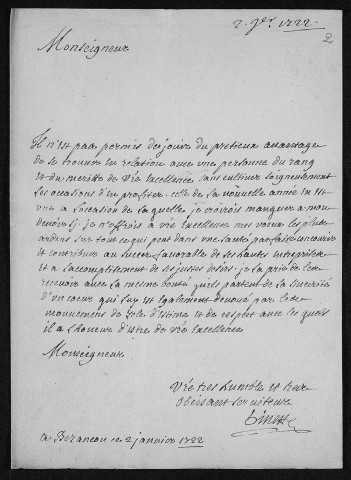 2. Jer 1722.
2
Monseigneur
Il n'est pas permis de jouir du pretieux avantage
de se trouver en relation avec une personne du rang
et du meritte de Vre Excellence sans cultiver soigneusement
les occasions d'en profiter. celle de la nouvelle année en est
une a l'ocasion de laquelle je croirois manquer a mon
devoir si je n'offrois a Vre Excellence mes voeux les plus
ardens sur tout ce qui peut dans une santé parfaite concourir
et contribuer au succes favorable de ses hautes entreprises
et a l'accomplissement de ses justes desirs. je la prie de les
recevoir avec la mesme bonté quils partent de la sincerité
d'un coeur qui luy est egalement devoué par les
mouvemens de zele d'estime et de respect avec les quels
il a l'honeur d'estre de Vre Excellence
Monseigneur
Vre tres humble et tres
obeissant serviteur
a Bezancon ce 2 janvier 1722